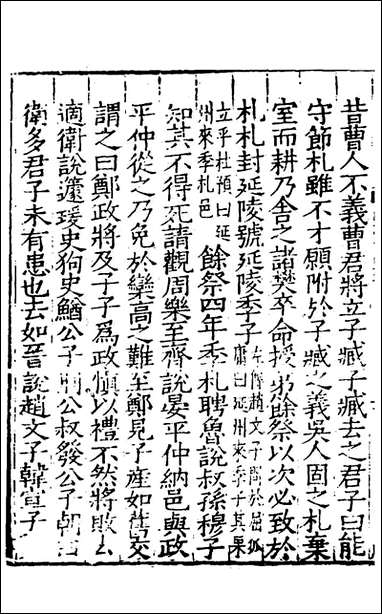 昔曹人不義曹君將立子臧子臧去之君子曰能
守節札雖不才願附於子臧之義吳人固之札棄
室而耕乃舍之諸樊卒命授弟餘祭以次必致於
札札封延陵號延陵季子左傳趙文子問於屈狐庸曰延州來季子其果
立乎杜預曰延州來季札邑餘祭四年季札聘魯說叔孫穆子
知其不得死請觀周樂至齊說晏平仲納邑與政
平仲從之乃免於欒高之難至鄭見子產如舊交
謂之曰鄭政將及子子為政慎以禮不然將敗去
適衛說蘧瑗史狗史鰌公子荊公叔發公子朝曰
衛多君子未有患也去如晉說趙文子韓宣子